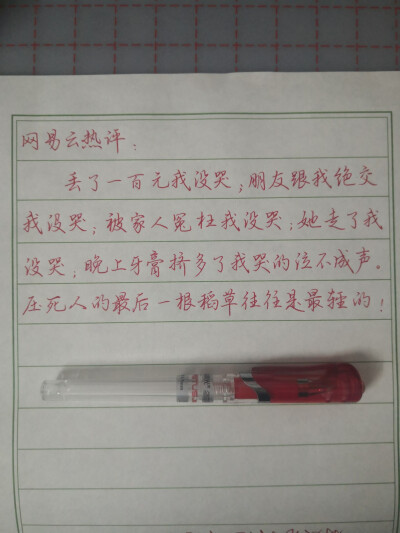 网易云热评：
丢了一百元我没哭；朋友跟我绝交
我没哭；被家人冤枉我没哭；她走了我
没哭；晚上牙膏挤多了我哭的泣不成声。
压死人的最后一根稻草往往是最轻的！